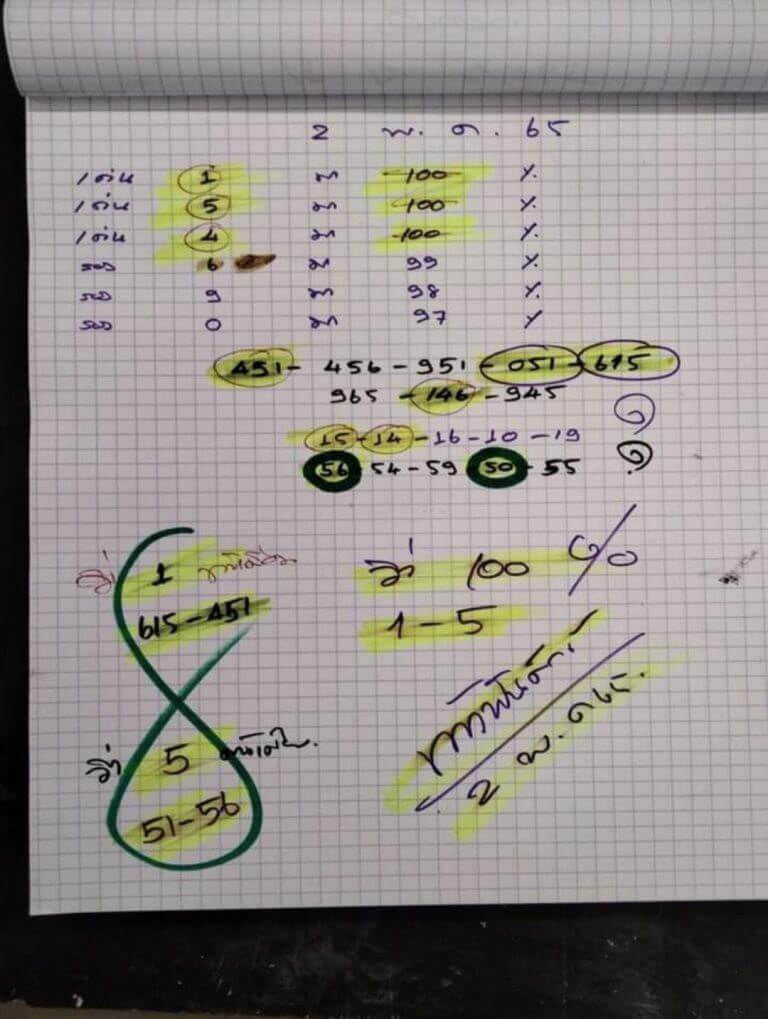 2 พ. ค. 65
1 เด่น 1 มา 100 %
1 เด่น 5 มา 100 %
1 เด่น 4 มา 100 %
รอง 6 มา 99 %
รอง 9 มา 98 %
รอง 0 มา 97 %
451 - 456 - 951 - 051 - 615
965 - 146 - 945
15 - 14 - 16 - 10 - 19
56 - 54 - 59 - 50 - 55
1
615 - 451
100 %
1 - 5
5
51 - 56
2 พ. ค 65.